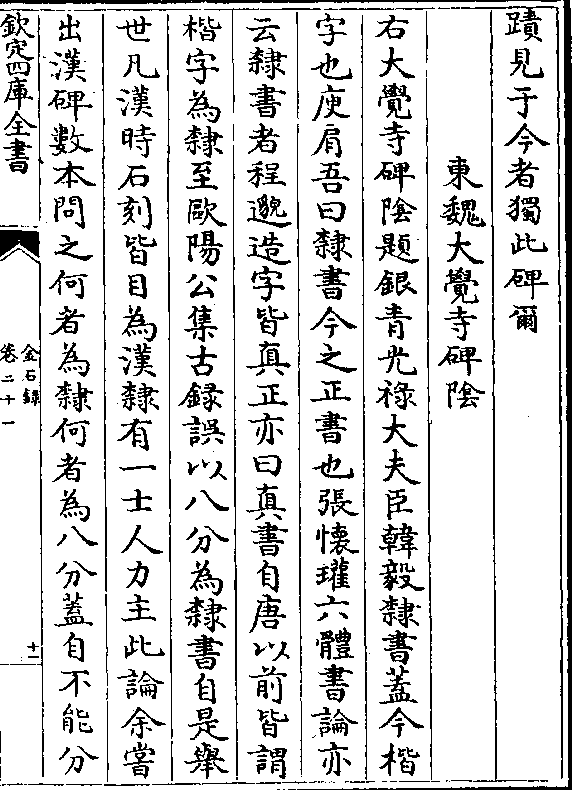 蹟見于今者獨此碑爾
東魏大覺寺碑陰
右大覺寺碑陰題銀青光祿大夫臣韓毅隸書蓋今楷
字也庾肩吾曰隸書今之正書也張懷瓘六體書論亦
云隸書者程邈造字皆真正亦曰真書自唐以前皆謂
楷字為隸至歐陽公集古録誤以八分為隸書自是舉
世凡漢時石刻皆目為漢隸有一士人力主此論余嘗
出漢碑數本問之何者為隸何者為八分蓋自不能分
欽定四庫全書
金石録
卷二十一
十一